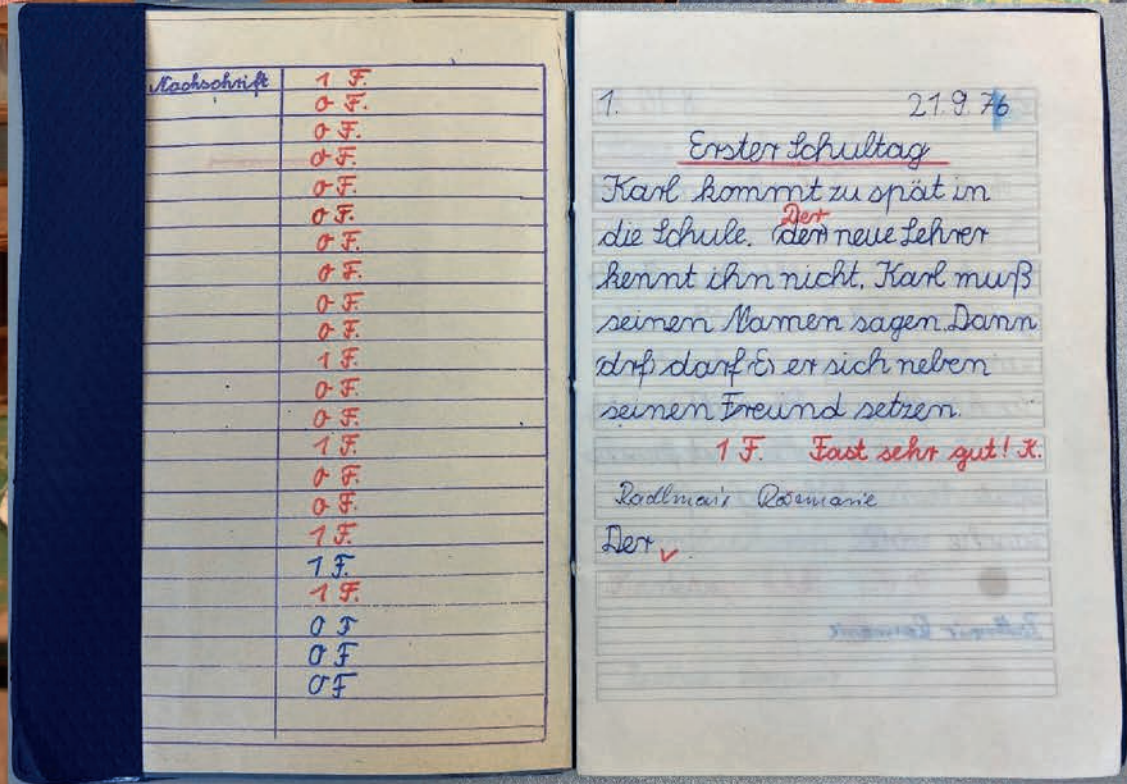 Nachschrift 1 F.
0 F.
0 F.
0 F.
0 F.
0 F.
0 F.
0 F.
0 F.
0 F.
1 F.
0 F.
0 F.
1 F.
0 F.
0 F.
1 F.
1 F.
1 F.
0 F
0 F
0 F
1. 21.9.76
Erster Schultag
Karl kommt zu spät in
Der
die Schule. (der) neue Lehrer
kennt ihn nicht. Karl muß
seinen Namen sagen. Dann
(drf) darf (E) er sich neben
seinen Freund setzen.
1 F. Fast sehr gut! K.
Radlmair Rosemarie
Der ✓